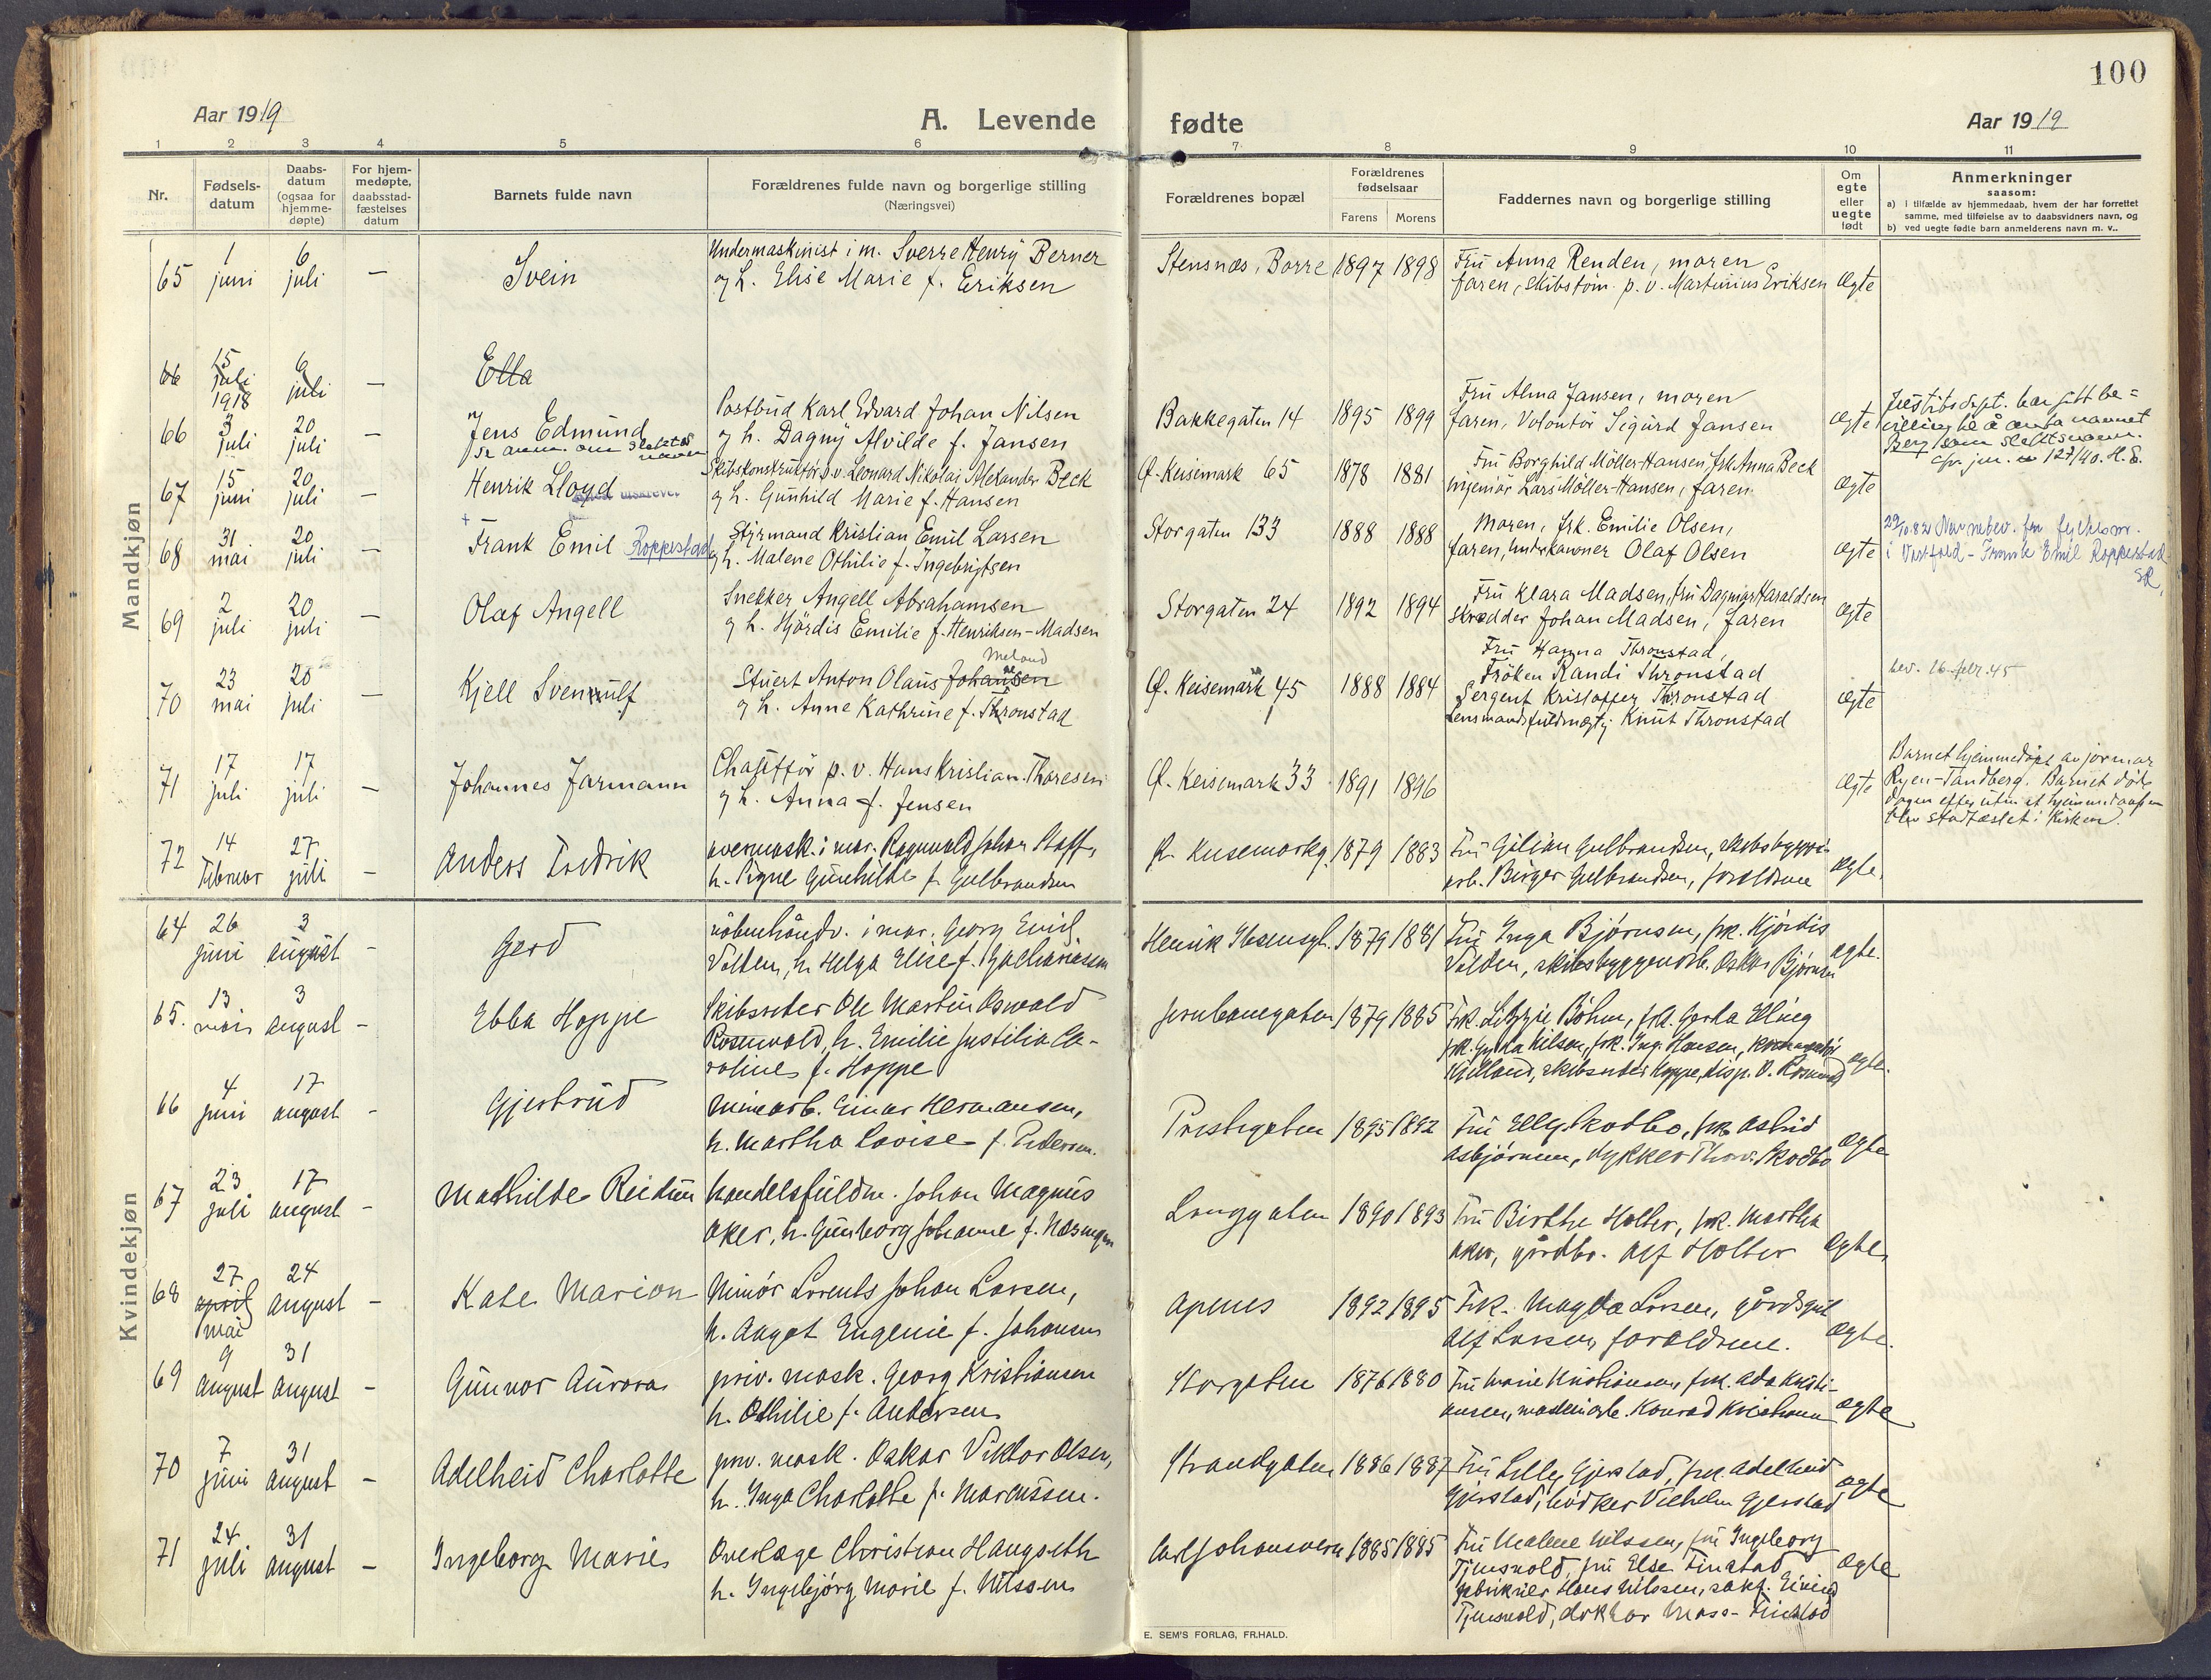 100
Aar 1919
A. Levende fødte
Aar 1919
1 2 3 4 5 6 7 8 9 10 11
Nr.
Fødsels-
datum
Daabs-
datum
(ogsaa for
hjemme-
døpte)
For hjem-
medøpte,
daabsstad-
fæstelses
datum
Barnets fulde navn
Forældrenes fulde navn og borgerlige stilling
(Næringsvei)
Forældrenes bopæl
Forældrenes
fødselsaar
Farens Morens
Faddernes navn og borgerlige stilling
Om
egte
eller
uegte
født
Anmerkninger
saasom:
a) i tilfælde av hjemmedaab, hvem der har forrettet
samme, med tilføielse av to daabsvidners navn, og
b) ved uegte fødte barn anmelderens navn m. v..
Mandkjøn
65 1 juni 6 juli — Svein
Undermaskinist i m. Sverre Henry Berner
og h. Elise Marie f. Eriksen
Stensnæs, Borre 1897 1898
Fru Anna Renden, moren
faren, Skibstøm. p. v. Martinius Eriksen
Ægte
66 15 juli 1918 6 juli — Ella
66 3 juli 20 juli — Jens Edmund
Se anm. om slektsnavn
Postbud Karl Edvard Johan Nilsen
og h. Dagny Alvilde f. Jansen
Bakkegaten 14 1895 1899
Fru Alma Jansen, moren
faren, Volontør Sigurd Jansen
Ægte
Justitsdept. har gitt be-
villing til å anta navnet
Berg som slektsnavn.
cfr. jnr. 127/40. H.S.
67 15 juni 20 juli — Henrik Lloyd
Skibskonstruktør p.v. Leonard Nikolai Alexander Beck
og h. Gunhild Marie f. Hansen
Ø. Keisemark 65 1878 1881
Fru Borghild Möller-Hansen, frk. Anna Beck
ingeniør Lars Möller-Hansen, faren.
Ægte
68 31 mai 20 juli — Frank Emil Roppestad
Styrmand Kristian Emil Larsen
og h. Malene Othilie f. Ingebrigtsen
Storgaten 133 1888 1888
Moren, frk. Emilie Olsen,
faren, Underkanoner Olaf Olsen
Ægte
29/10.82 Navnebev. fra fylkesm.
i Vestfold - Frank Emil Roppestad
SR.
69 2 juli 20 juli — Olaf Angell
Snekker Angell Abrahamsen
og h. Hjördis Emilie f. Henriksen-Madsen
Storgaten 24 1892 1894
Fru Klara Madsen, fru Dagmar Haraldsen
Skrædder Johan Madsen, faren
Ægte
70 23 mai 20 juli — Kjell Svenulf
Meland
Stuert Anton Olaus Johansen
og h. Anne Kathrine f. Thronstad
Ø. Keisemark 45 1888 1884
Fru Hanna Thronstad,
Frøken Randi Thronstad
Sergent Kristoffer Thronstad
Lensmandsfuldmægtig Knut Thronstad
Ægte
bev. 16 febr. 45
71 17 juli 17 juli — Johannes Jarmann
Chauffør p. v. Hans Kristian Thoresen
og h. Anna f. Jensen
Ø. Keisemark 33 1891 1896
Ægte
Barnet hjemmedøpt av jormor
Ryen-Tandberg. Barnet døde
dagen efter uten at hjemmedaapen
blev stadfæstet i Kirken.
72 14 februar 27 juli — Anders Fredrik
overmask. i mar. Ragnvald Johan Staff,
h. Signe Gunhilde f. Gulbrandsen
1879 1883
Fru Gilian Gulbrandsen, skibsbyggeri-
arb. Birger Gulbrandsen, forældrene
ægte.
Kvindekjøn
64 26 juni 3 august - Gerd
våbenhåndv. i mar. Georg Emil
Volden, h. Helga Elise f. Zachariassen
Henrik Ibsensgt. 1879 1881
Fru Inga Bjørnsen, frk. Hjørdis
Volden, skibsbyggerarb. Oskar Bjørnsen
ægte.
65. 13 mars 3 august - Ebba Hoppe
Skibsreder Ole Martin Oswald
Rosenvold, h. Emilie Justilia Ca-
roline f. Hoppe
Jernbanegaten 1879 1885
Frk. Lizzie Böhm, frk. Gerda Elling
frk. Gyda Nilsen, frk. Ing. Hansen,
Kielland, skibsreder Hoppe, disp. O. Rosenvold
ægte.
66 4 juni 17 august - Gjertrud
Minearb. Einar Hermansen,
h. Martha Lovise f. Pedersen.
Prestegaten 1895 1892
Fru Elly Skotbo, frk Astrid
Asbjørnsen, dykker Thor. Skodbo
ægte
67 23 juli 17 august - Mathilde Reidun
handelsfuldm. Johan Magnus
Aker, h. Gunborg Johanne f.
Langgaten 1890 1893
Fru Birthe Holter, frk. Martha
Aker, gårdbr. Alf Holter
ægte.
68 27 april mai 24 august - Kate Marion
Minør Lorents Johan Larsen,
h. Aagot Eugenie f. Johansen
Apenes 1892 1895
Frk. Magda Larsen, gårdsgut
Alf Larsen, forældrene.
ægte.
69 9 august 31 august - Gunvor Aurora
priv. mask. Georg Kristiansen
h. Othilie f. Andersen
Storgaten 1876 1880
Fru Marie Kristiansen, frk. Ada Kristi-
ansen, maskinarb. Konrad Kristiansen
ægte
70 7 juni 31 august - Adelheid Charlotte
priv. mask. Oskar Viktor Olsen,
h. Inga Charlotte f. Marcussen.
Strandgaten 1886 1887
Fru Lilly Gjerstad, frk. Adelheid
Gjerstad, bødker Vilhelm Gjerstad
ægte
71 24 juli 31 august - Ingeborg Marie
Overlæge Christian Haugseth
h. Ingebjørg Marie f. Nilssen
Carljohansvern 1885 1885
Fru Malene Nilssen, fru Ingeborg
Tjensvold, fru Else Finstad
fabrikeier Hans Nilssen, sakf. Eivind
Tjensvold, doktor Moss-Finstad
ægte
E. SEM'S FORLAG, FR.HALD.